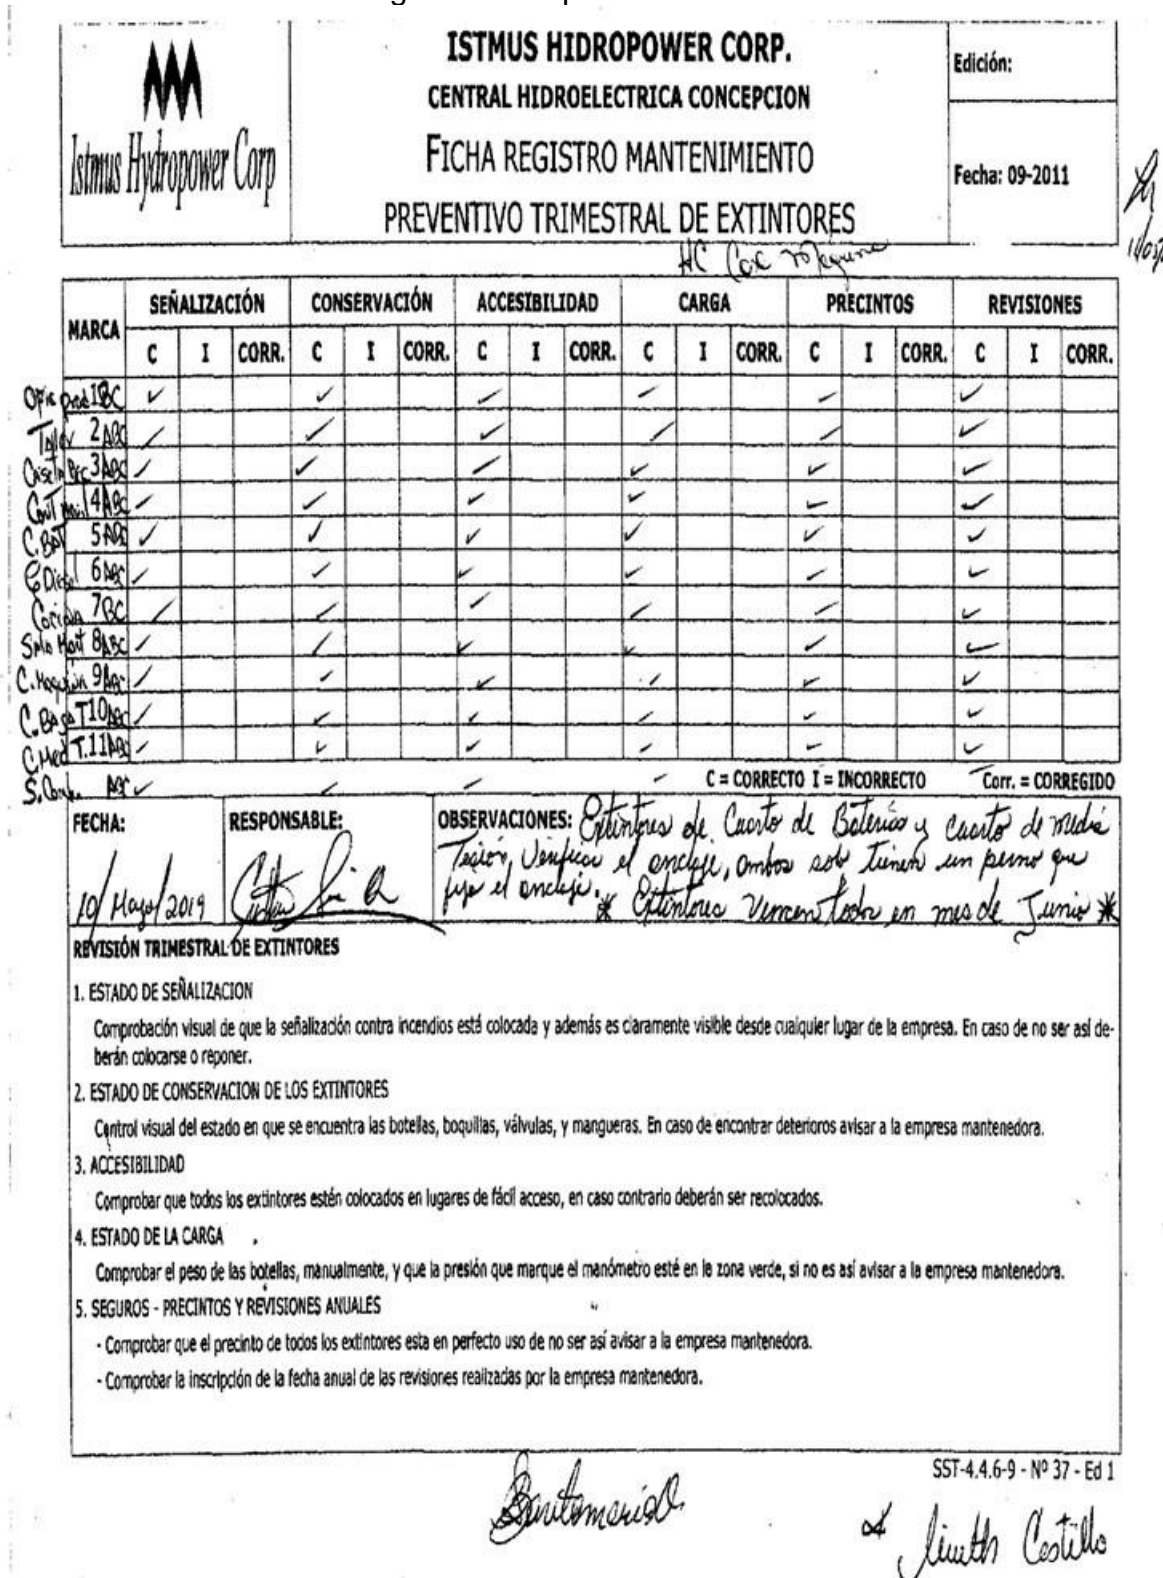 ISTMUS HIDROPOWER CORP.
CENTRAL HIDROELECTRICA CONCEPCION
FICHA REGISTRO MANTENIMIENTO
PREVENTIVO TRIMESTRAL DE EXTINTORES
Istmus Hydropower Corp
Edición:
Fecha: 09-2011
MARCA SEÑALIZACIÓN CONSERVACIÓN ACCESIBILIDAD CARGA PRECINTOS REVISIONES
C I CORR. C I CORR. C I CORR. C I CORR. C I CORR. C I CORR.
1 BC ✓ ✓ ✓ ✓ ✓ ✓
Taller 2 ABC ✓ ✓ ✓ ✓ ✓ ✓
3 ABC ✓ ✓ ✓ ✓ ✓ ✓
4 ABC ✓ ✓ ✓ ✓ ✓ ✓
C. Bat 5 ABC ✓ ✓ ✓ ✓ ✓ ✓
6 ABC ✓ ✓ ✓ ✓ ✓ ✓
Cocina 7 BC ✓ ✓ ✓ ✓ ✓ ✓
8 ABC ✓ ✓ ✓ ✓ ✓ ✓
9 ABC ✓ ✓ ✓ ✓ ✓ ✓
C. Baja T 10 ABC ✓ ✓ ✓ ✓ ✓ ✓
C. Med T. 11 ABC ✓ ✓ ✓ ✓ ✓ ✓
ABC ✓ ✓ ✓ ✓
C = CORRECTO I = INCORRECTO Corr. = CORREGIDO
FECHA:
10/Mayo/2019
RESPONSABLE:
OBSERVACIONES: Extintores de Cuarto de Baterias y cuarto de media
Tesión, Verificar el anclaje, ambos solo tienen un perno que
fije el anclaje. * Extintores Vencen todos en mes de Junio *
REVISIÓN TRIMESTRAL DE EXTINTORES
1. ESTADO DE SEÑALIZACION
Comprobación visual de que la señalización contra incendios está colocada y además es claramente visible desde cualquier lugar de la empresa. En caso de no ser así de-
berán colocarse o reponer.
2. ESTADO DE CONSERVACION DE LOS EXTINTORES
Control visual del estado en que se encuentra las botellas, boquillas, válvulas, y mangueras. En caso de encontrar deterioros avisar a la empresa mantenedora.
3. ACCESIBILIDAD
Comprobar que todos los extintores estén colocados en lugares de fácil acceso, en caso contrario deberán ser recolocados.
4. ESTADO DE LA CARGA
Comprobar el peso de las botellas, manualmente, y que la presión que marque el manómetro esté en la zona verde, si no es así avisar a la empresa mantenedora.
5. SEGUROS - PRECINTOS Y REVISIONES ANUALES
- Comprobar que el precinto de todos los extintores esta en perfecto uso de no ser así avisar a la empresa mantenedora.
- Comprobar la inscripción de la fecha anual de las revisiones realizadas por la empresa mantenedora.
SST-4.4.6-9 - Nº 37 - Ed 1
Castillo